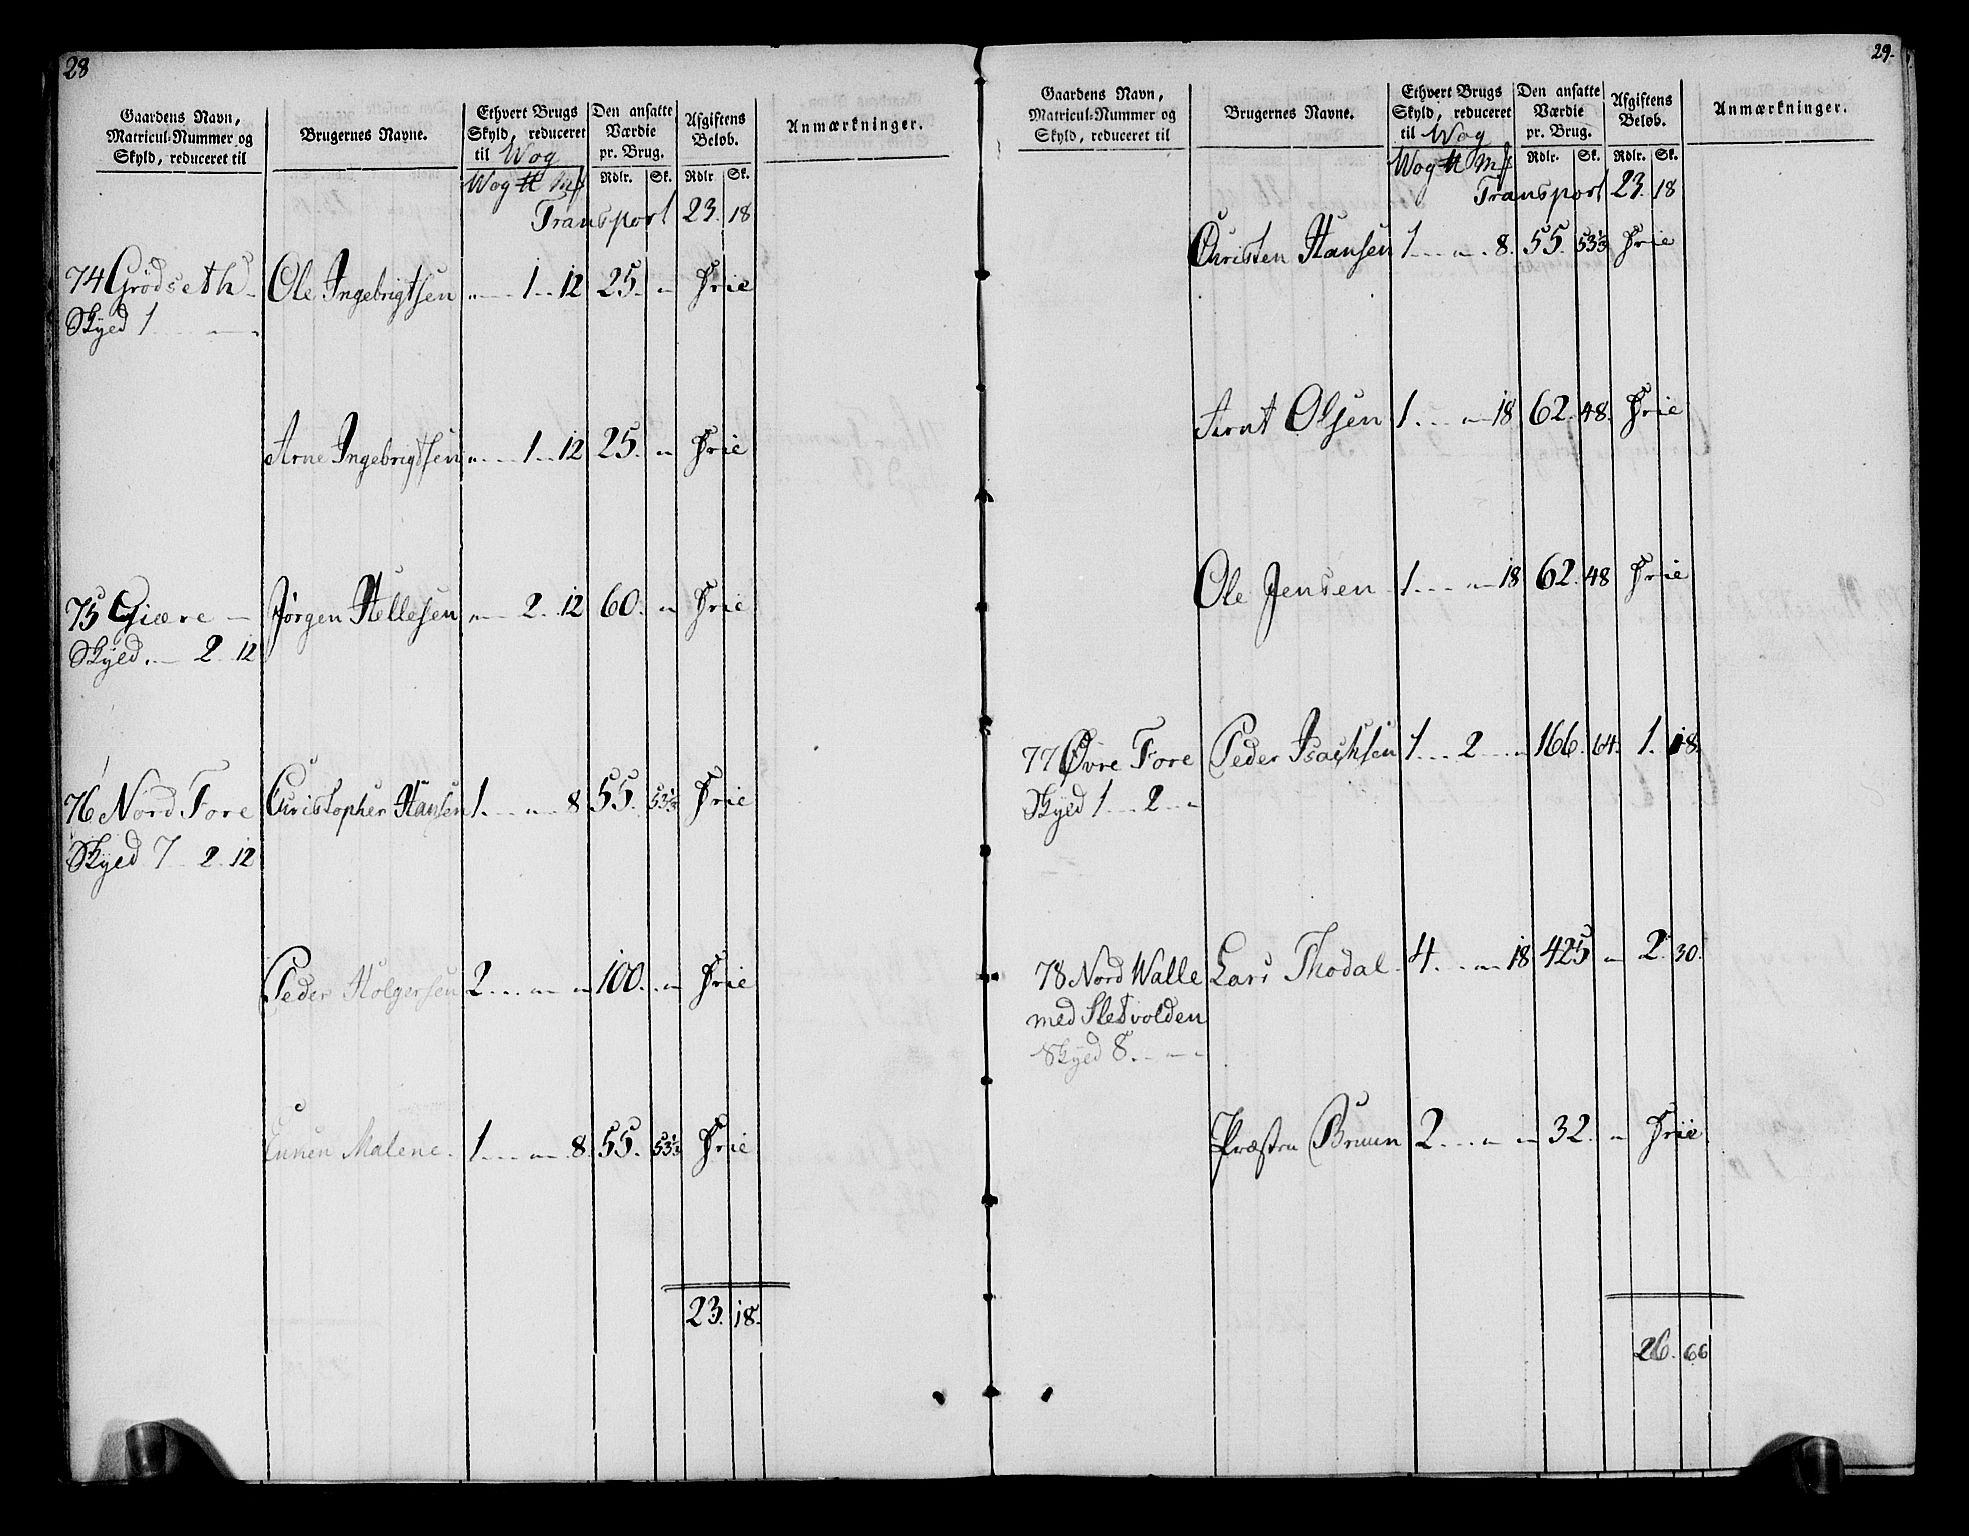 28
Gaardens Navn,
Matricul-Nummer og
Skyld, reduceret til
Brugernes Navne.
Ethvert Brugs
Skyld, reduceret
til Wog
Den ansatte
Værdie
pr. Brug.
Afgiftens
Beløb.
Anmærkninger.
Wog ℔ mƒ Rdlr. Sk. Rdlr. Sk.
Transport 23. 18
74 Grödseth Ole Ingebrigtsen " 1 12 25. " Frie
Skyld 1 "
Arne Ingebrigtsen " 1 12 25. " Frie
75 Giære Jörgen Hellesen " 2 12 60. " Frie
Skyld " 2 12
76 Nord Fore Christopher Hansen 1. " 8 55. 53⅓ Frie
Skyld 7 2 12
Peder Holgersen 2 " " 100. " Frie
Enken Malene. 1 " 8. 55. 53⅓ Frie
23. 18.
29.
Gaardens Navn,
Matricul-Nummer og
Skyld, reduceret til
Brugernes Navne.
Ethvert Brugs
Skyld, reduceret
til Wog
Den ansatte
Værdie
pr. Brug.
Afgiftens
Beløb.
Anmærkninger.
Wog ℔ mƒ Rdlr. Sk. Rdlr. Sk.
Transport 23. 18
Christen Hansen 1 " 8. 55. 53⅓ Frie
Arnt Olsen 1 " 18 62. 48. Frie
Ole Jensen 1 " 18 62. 48 Frie
77 Øvre Fore Peder Isachsen 1 2 " 166. 64. 1. 18
Skyld 1 2 "
78 Nord Walle Lars Thodal. 4 " 18 425 " 2. 30.
med Sletvolden
Skyld 8. " "
Bruun 2 " " 32. " Frie
26. 66